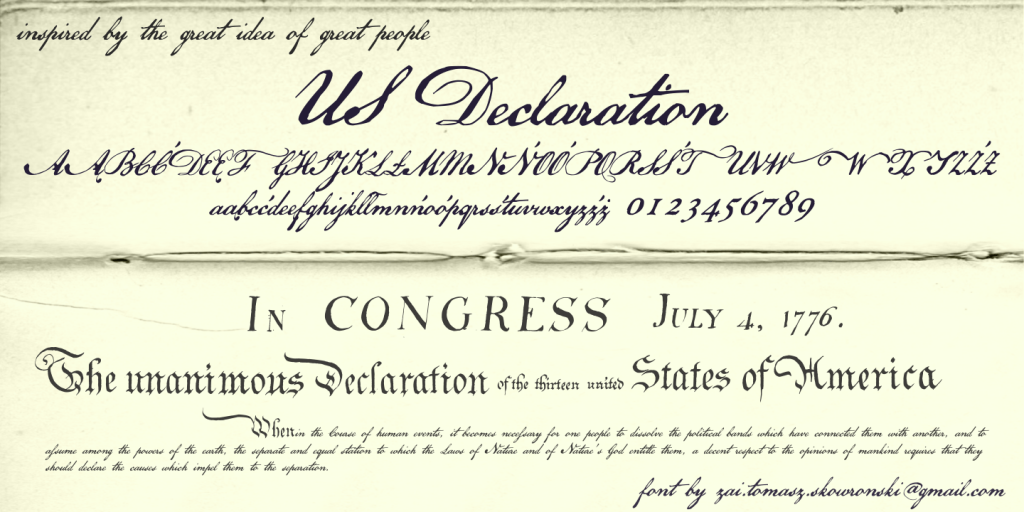 inspired by the great idea of great people
US Declaration
AĄBCĆDEĘF GHIJKLŁMNŃOÓPQRSŚT UVW W XYZŹŻ
aąbcćdeęfghijklłmnńoópqrsśtuvwxyzźż 0123456789
In CONGRESS July 4, 1776.
The unanimous Declaration of the thirteen united States of America
When in the Course of human events, it becomes necefsary for one people to dissolve the political bands which have connected them with another, and to
afsume among the powers of the earth, the separate and equal station to which the Laws of Nature and of Nature's God entitle them, a decent respect to the opinions of mankind requires that they
should declare the causes which impel them to the separation.
font by zai.tomasz.skowronski@gmail.com